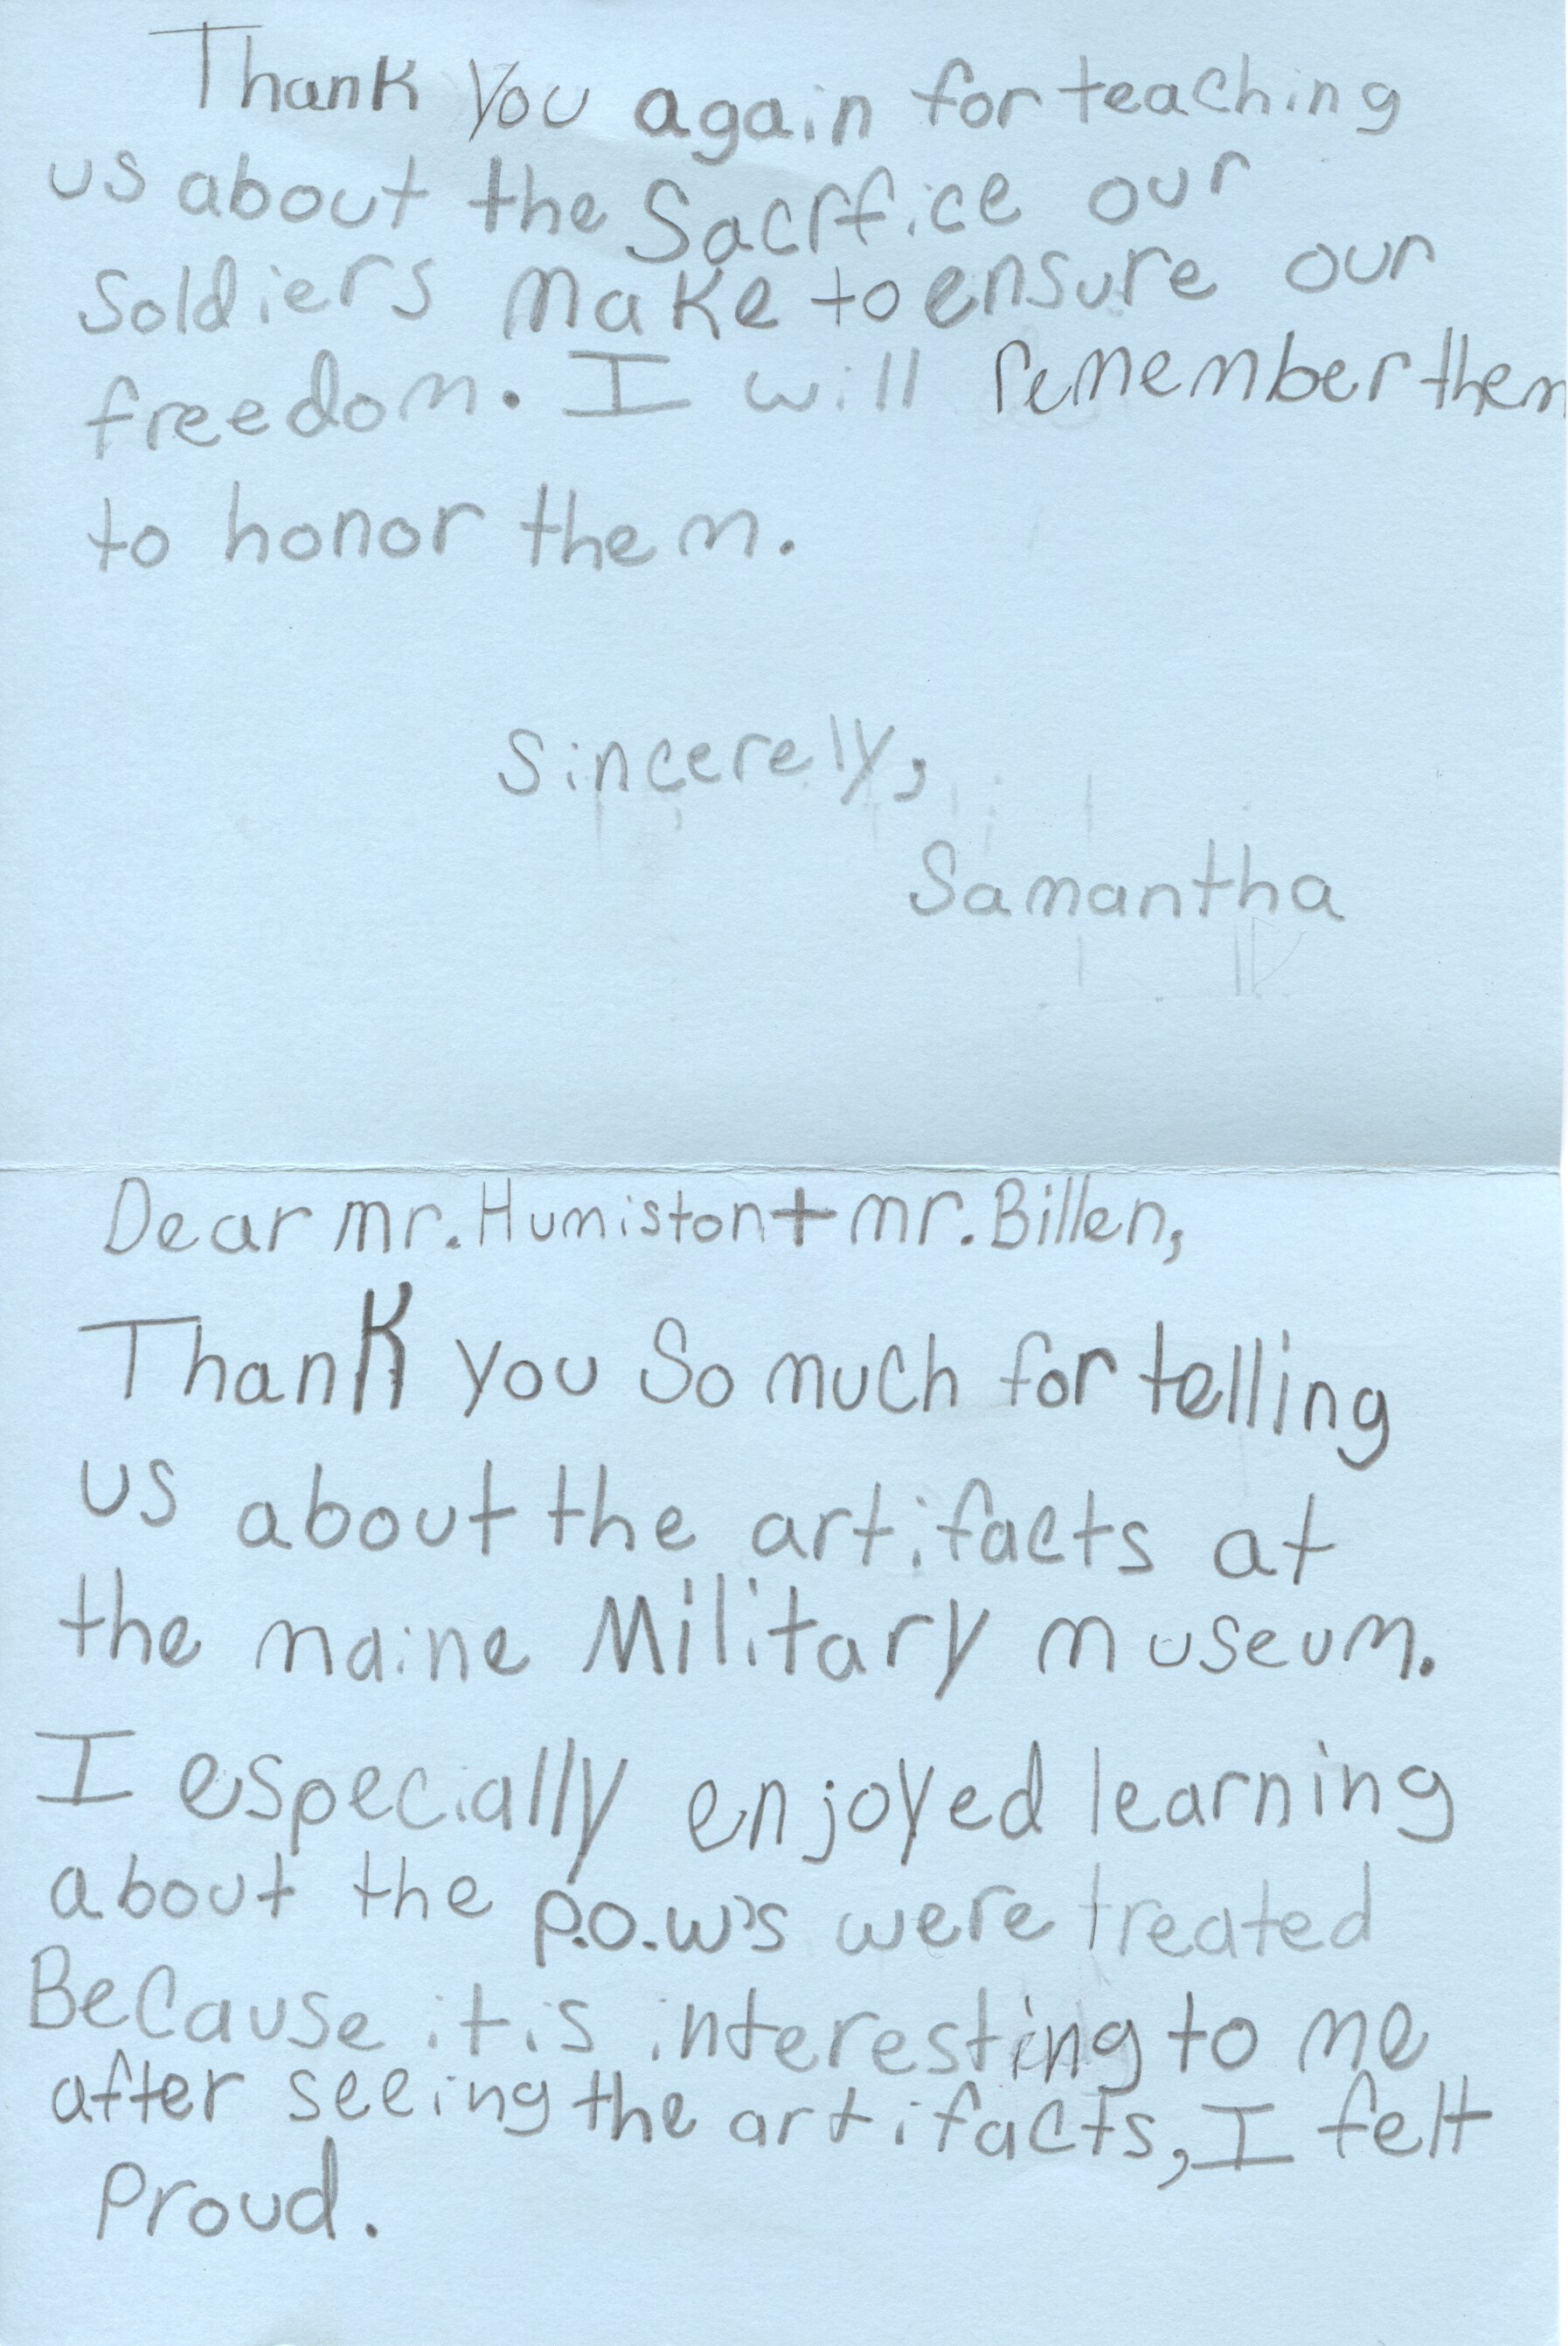 Thank you again for teaching
us about the Sacrfice our
Soldiers make to ensure our
freedom. I will remember them
to honor them.
Sincerely,
Samantha
Dear mr. Humiston + mr. Billen,
Thank you So much for telling
us about the artifacts at
the maine Military museum.
I especially enjoyed learning
about the p.o.w's were treated
Because it is interesting to me
after seeing the artifacts, I felt
Proud.